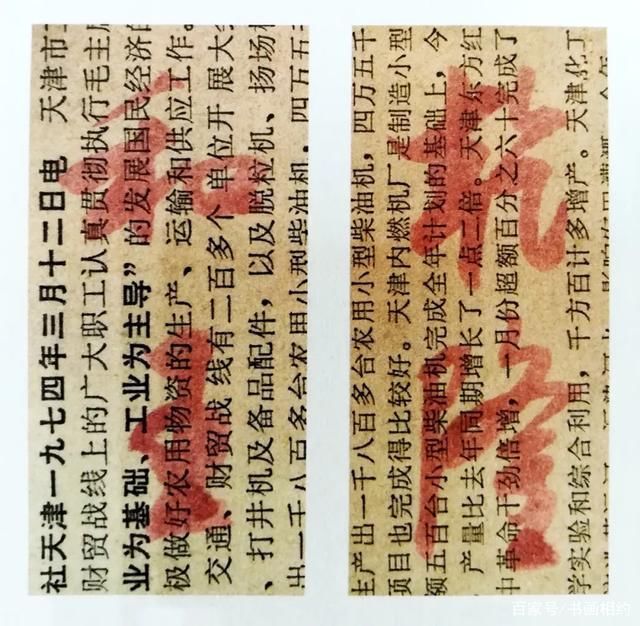 社天津一九七四年三月十二日电 天津市
财贸战线上的广大职工认真贯彻执行毛主席
业为基础、工业为主导”的发展国民经济的
极做好农用物资的生产、运输和供应工作。
交通、财贸战线有二百多个单位开展大
、打井机及备品配件，以及脱粒机、扬场机
出一千八百多台农用小型柴油机，四万五
生产出一千八百多台农用小型柴油机，四万五千
项目也完成得比较好。天津内燃机厂是制造小型
额五百台小型柴油机完成全年计划的基础上，今
产量比去年同期增长了一点二倍。天津东方红
中革命干劲倍增，一月份超额百分之六十完成了
学实验和综合利用，千方百计多增产。天津化工
百家号/书画相约